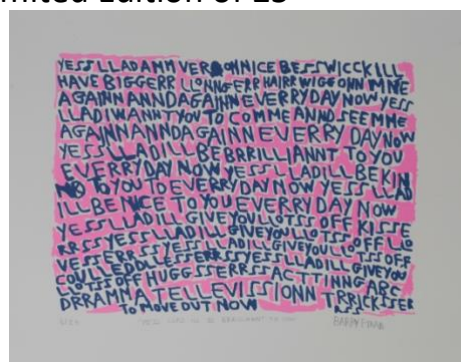 Limited Edition of 25
YESSLLADAMM VERONNICE BESSWICCKILL
HAVE BIGGERR LLONNGERR HAIRR WIGG ONN MINE
AGAINNANNDAGAINN EVERRYDAY NOW YESS
LLADIWANNTYOU TO COMMEANND SEEMME
AGAINNANNDAGAINN EVERRY DAY NOW
YESSLLADILL BE BRRILLIANNT TO YOU
EVERRYDAY NOW YESSLLADILL BEKIN
ND TO YOU TO EVERRYDAY NOW YESS LLAD
ILL BE NICE TO YOU EVERRY DAY NOW
YESSLLADILL GIVEYOU LLOTSS OFF KISSE
RRSSYESSLLADILL GIVEYOU LLOTSS OFF LLO
VESSERRSSYESSLLADILL GIVEYOU LLOTSS OFF
COULLEDDLLESSERRSSYESSLLADILL GIVEYOU
LLOTSS OFF HUGGSSERRSS ACTTINNG ABC
DRRAMMA TELLEVISSIONN TRRICKSSER
RSS
TO MOVE OUT NOW